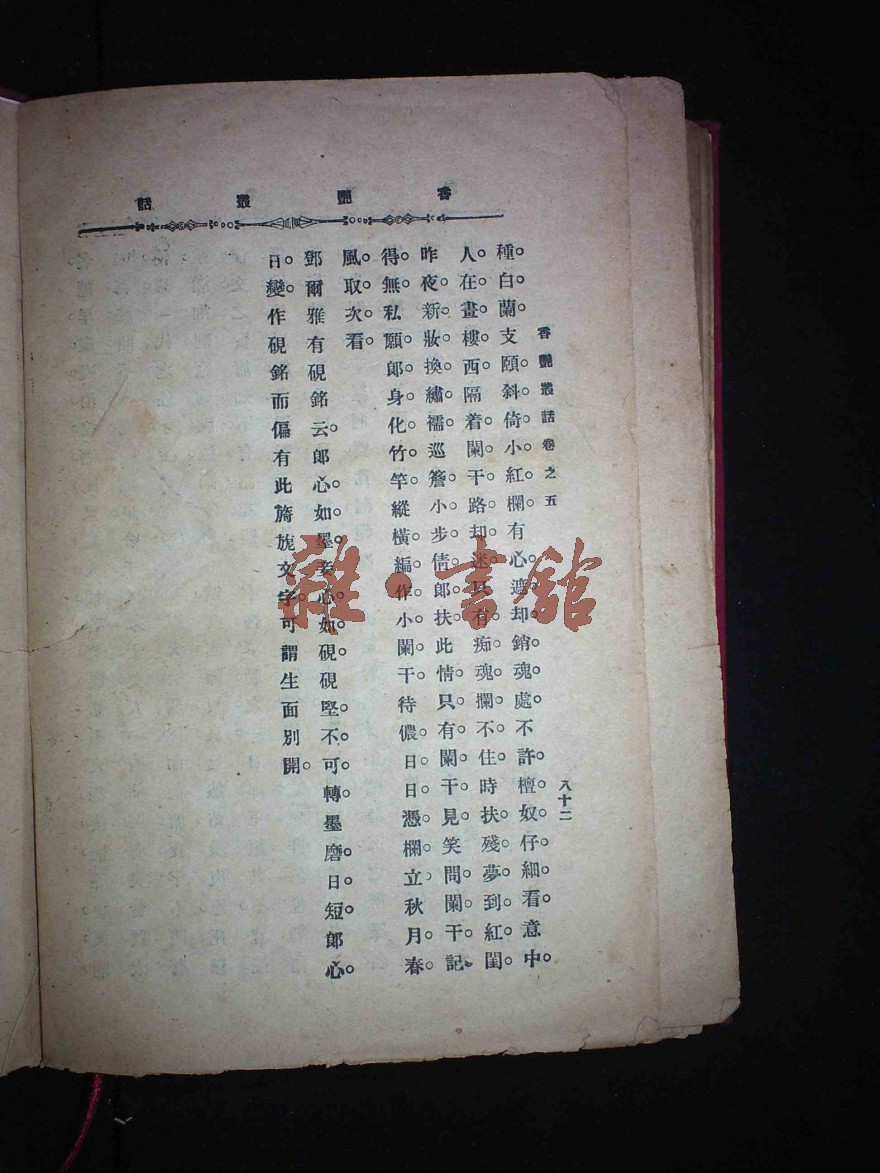 香艷叢話
香艷叢話卷之五
八十二
種。白蘭。支頤。斜倚。小紅欄有心。遮却。銷魂。處。不許檀。奴。仔細。看。意中。
人。在畫。樓。西隔着。闌。干。路。却迷只有。痴。魂。攔。不。住。時扶。殘。夢。到。紅。閨。
昨。夜。新。妝。換。繡。襦。巡。簷。小步倩。郎。扶。此情。只。有。闌。干。見。笑問。闌。干。記。
得。無。私願。郎。身。化。竹。竿。縱橫。編作。小闌。干。待儂。日日。憑。欄。立。秋月。春。
風。取。次。看。
鄧爾雅有硯銘云。郎心。如墨。妾心。如硯。硯堅。不。可。轉墨磨。日短。郎心。
日。變。作硯銘而偏有此旖旎文字。可謂生面別開。
雜·書舘